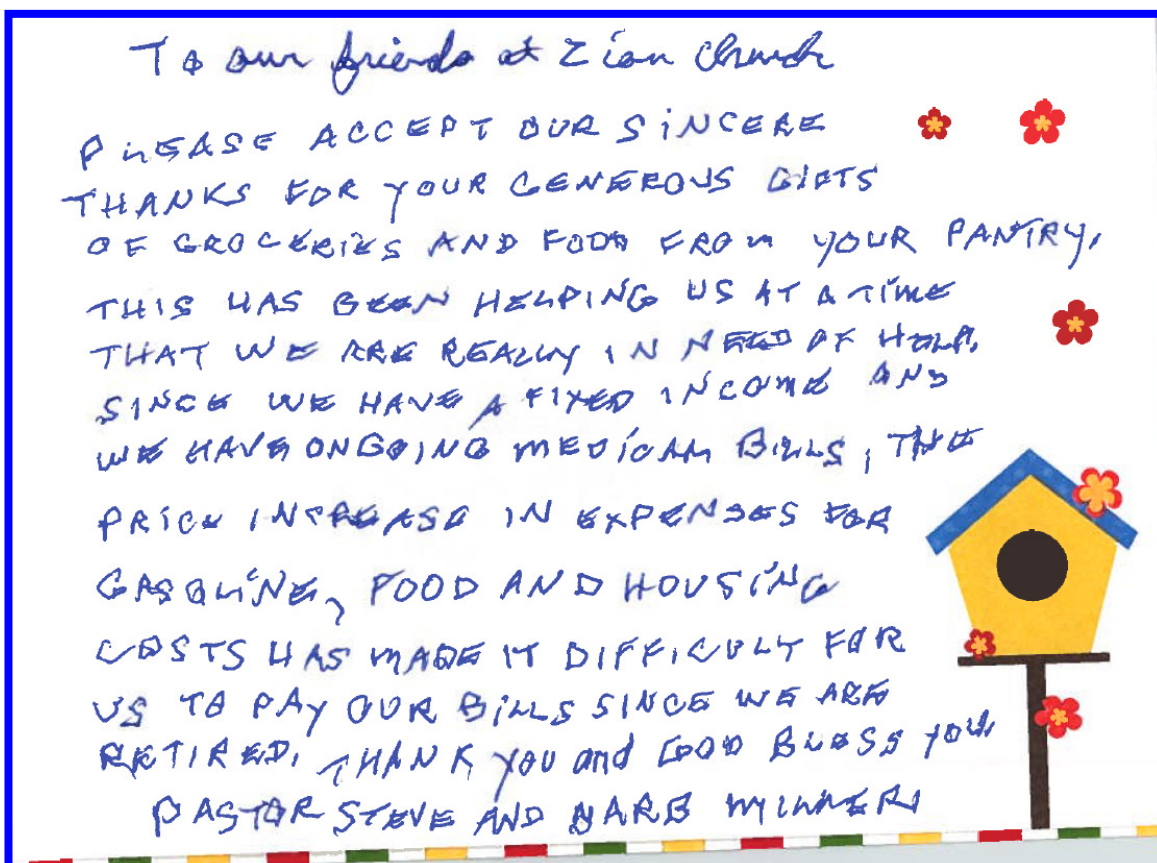 To our friends at Zion Church
PLEASE ACCEPT OUR SINCERE
THANKS FOR YOUR GENEROUS GIFTS
OF GROCERIES AND FOOD FROM YOUR PANTRY.
THIS HAS BEEN HELPING US AT A TIME
THAT WE ARE REALLY IN NEED OF HELP.
SINCE WE HAVE A FIXED INCOME AND
WE HAVE ONGOING MEDICAL BILLS, THE
PRICE INCREASE IN EXPENSES FOR
GASOLINE, FOOD AND HOUSING
COSTS HAS MADE IT DIFFICULT FOR
US TO PAY OUR BILLS SINCE WE ARE
RETIRED. THANK YOU and GOD BLESS YOU
PASTOR STEVE AND BARB